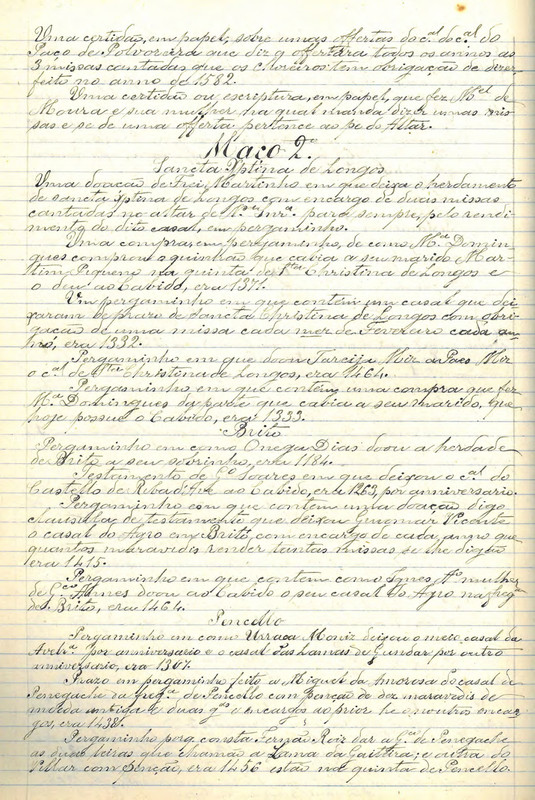 Uma certidão, em papel, sobre umas offertas do c.al do c.al do
Paço de Polvoreira que diz q offertára todos os annos as
3 missas cantadas que os Coreiros tem obrigação de dizer,
feito no anno de 1582.
Uma certidão ou escriptura, em papel, que fez M.el de
Moura e sua mulher na qual manda dizer umas mis-
sas e se de uma offerta pertence ao pé do Altar.
Maço 2.º
Sancta Xptina de Longos
Uma doação de Frei Martinho em que deixa o herdamento
de Sancta Xptina de Longos com encargo de duas missas
cantadas no altar de N. Snr.ª para sempre, pelo rendi-
mento do dito casal, em pergaminho.
Uma compra, em pergaminho, de como M.ª Domin-
gues comprou o quinhão que cabia a seu marido Mar-
tim Pequeno na quinta de S.ta Christina de Longos e
o deu ao Cabido, era 1371.
Um pergaminho em que contém um casal que dei-
xaram de prazo de Sancta Christina de Longos com obri-
gação de uma missa cada mez de Fevereiro cada an-
no, era 1332.
Pergaminho em que doou Tareija Miz a Paes Miz
o c.al de S.ta Christina de Longos, era 1464.
Pergaminho em que contem uma compra que fez
M.ª Domingues da parte que cabia a seu marido, que
hoje possue o Cabido, era 1333.
Brito
Pergaminho em como Onega Dias doou a herdade
de Brito a seu sobrinho, era 1184.
Testamento de G.º Soares em que deixou o c.al do
Castello de Riba d'Ave ao Cabido, era 1263, por anniversario.
Pergaminho em que contem uma doação, digo
clausula de testamento que deixou Guiomar Vicente
o casal do Agro em Brito, com encargo de cada anno que
quantos maravedis render tantas missas se lhe digam
era 1415.
Pergaminho em que contem como Ignes A.º mulher
de G.co Annes doou ao Cabido o seu casal do Agro na freg.ª
de Brito, era 1464.
Pencello
Pergaminho em como Urraca Moniz deixou o meio casal da
por anniversario e o casal das Lamas de Gundar por outro
anniversario, era 1307.
Prazo em pergaminho feito a Miguel da Amorosa do casal de
Penegache da freg.ª de Pencello com penção de dez maravedis de
moeda antiga e duas g.as e encargos ao prior e outros encar-
gos, era 1438.
Pergaminho porq. consta Fernão Roiz dar a G.ª de Penegache
as duas leiras que chamão a Lama da Gaiteira; e outra do
Pillar com penção, era 1456 estão na quinta de Pencello.